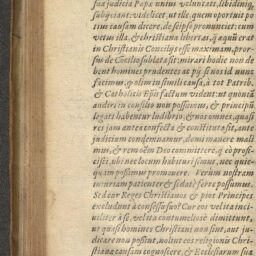 sua judicia Papæ unius voluntati, libidiniq;
subijciant: videlicet, ut ille, quem oportuit po
tius causam dicere, de seipso pronunciet: cum
vetus illa, & christiana libertas, quæ
in Christianis Concilijs esse maximam, pror-
sus de Concilio sublata sit: mirari hodie non de
bent homines prudentes ac pij si nos id nunc
facimus, quod olim simili causa, à tot Patrib.
& Catholicis Epis factum vident: ut quoniā
audiri in consilio non possumus, & principū
legati habentur ludibrio, & nos omnes, quasi
res jam antea confecta & constituta sit, ante
judicium condemnamur, domi manere mali
mus, & rem totam Deo committere, quàm profi-
cisci, ubi nec locum habituri simus, nec quic-
quam possimus promovere. Verum nostram
injuriam patienter & sedatè ferre possumus.
Sed cur Reges Christianos & pios Principes
excludunt à consessu suo? Cur eos vel tàm inci-
viliter à se, vel ita contumeliosè dimittunt,
ut quasi homines Christiani non sint, aut ju-
dicare non possint, nolunt eos religionis Chri-
stianæ causam cognoscere, & Ecclesiarum sua